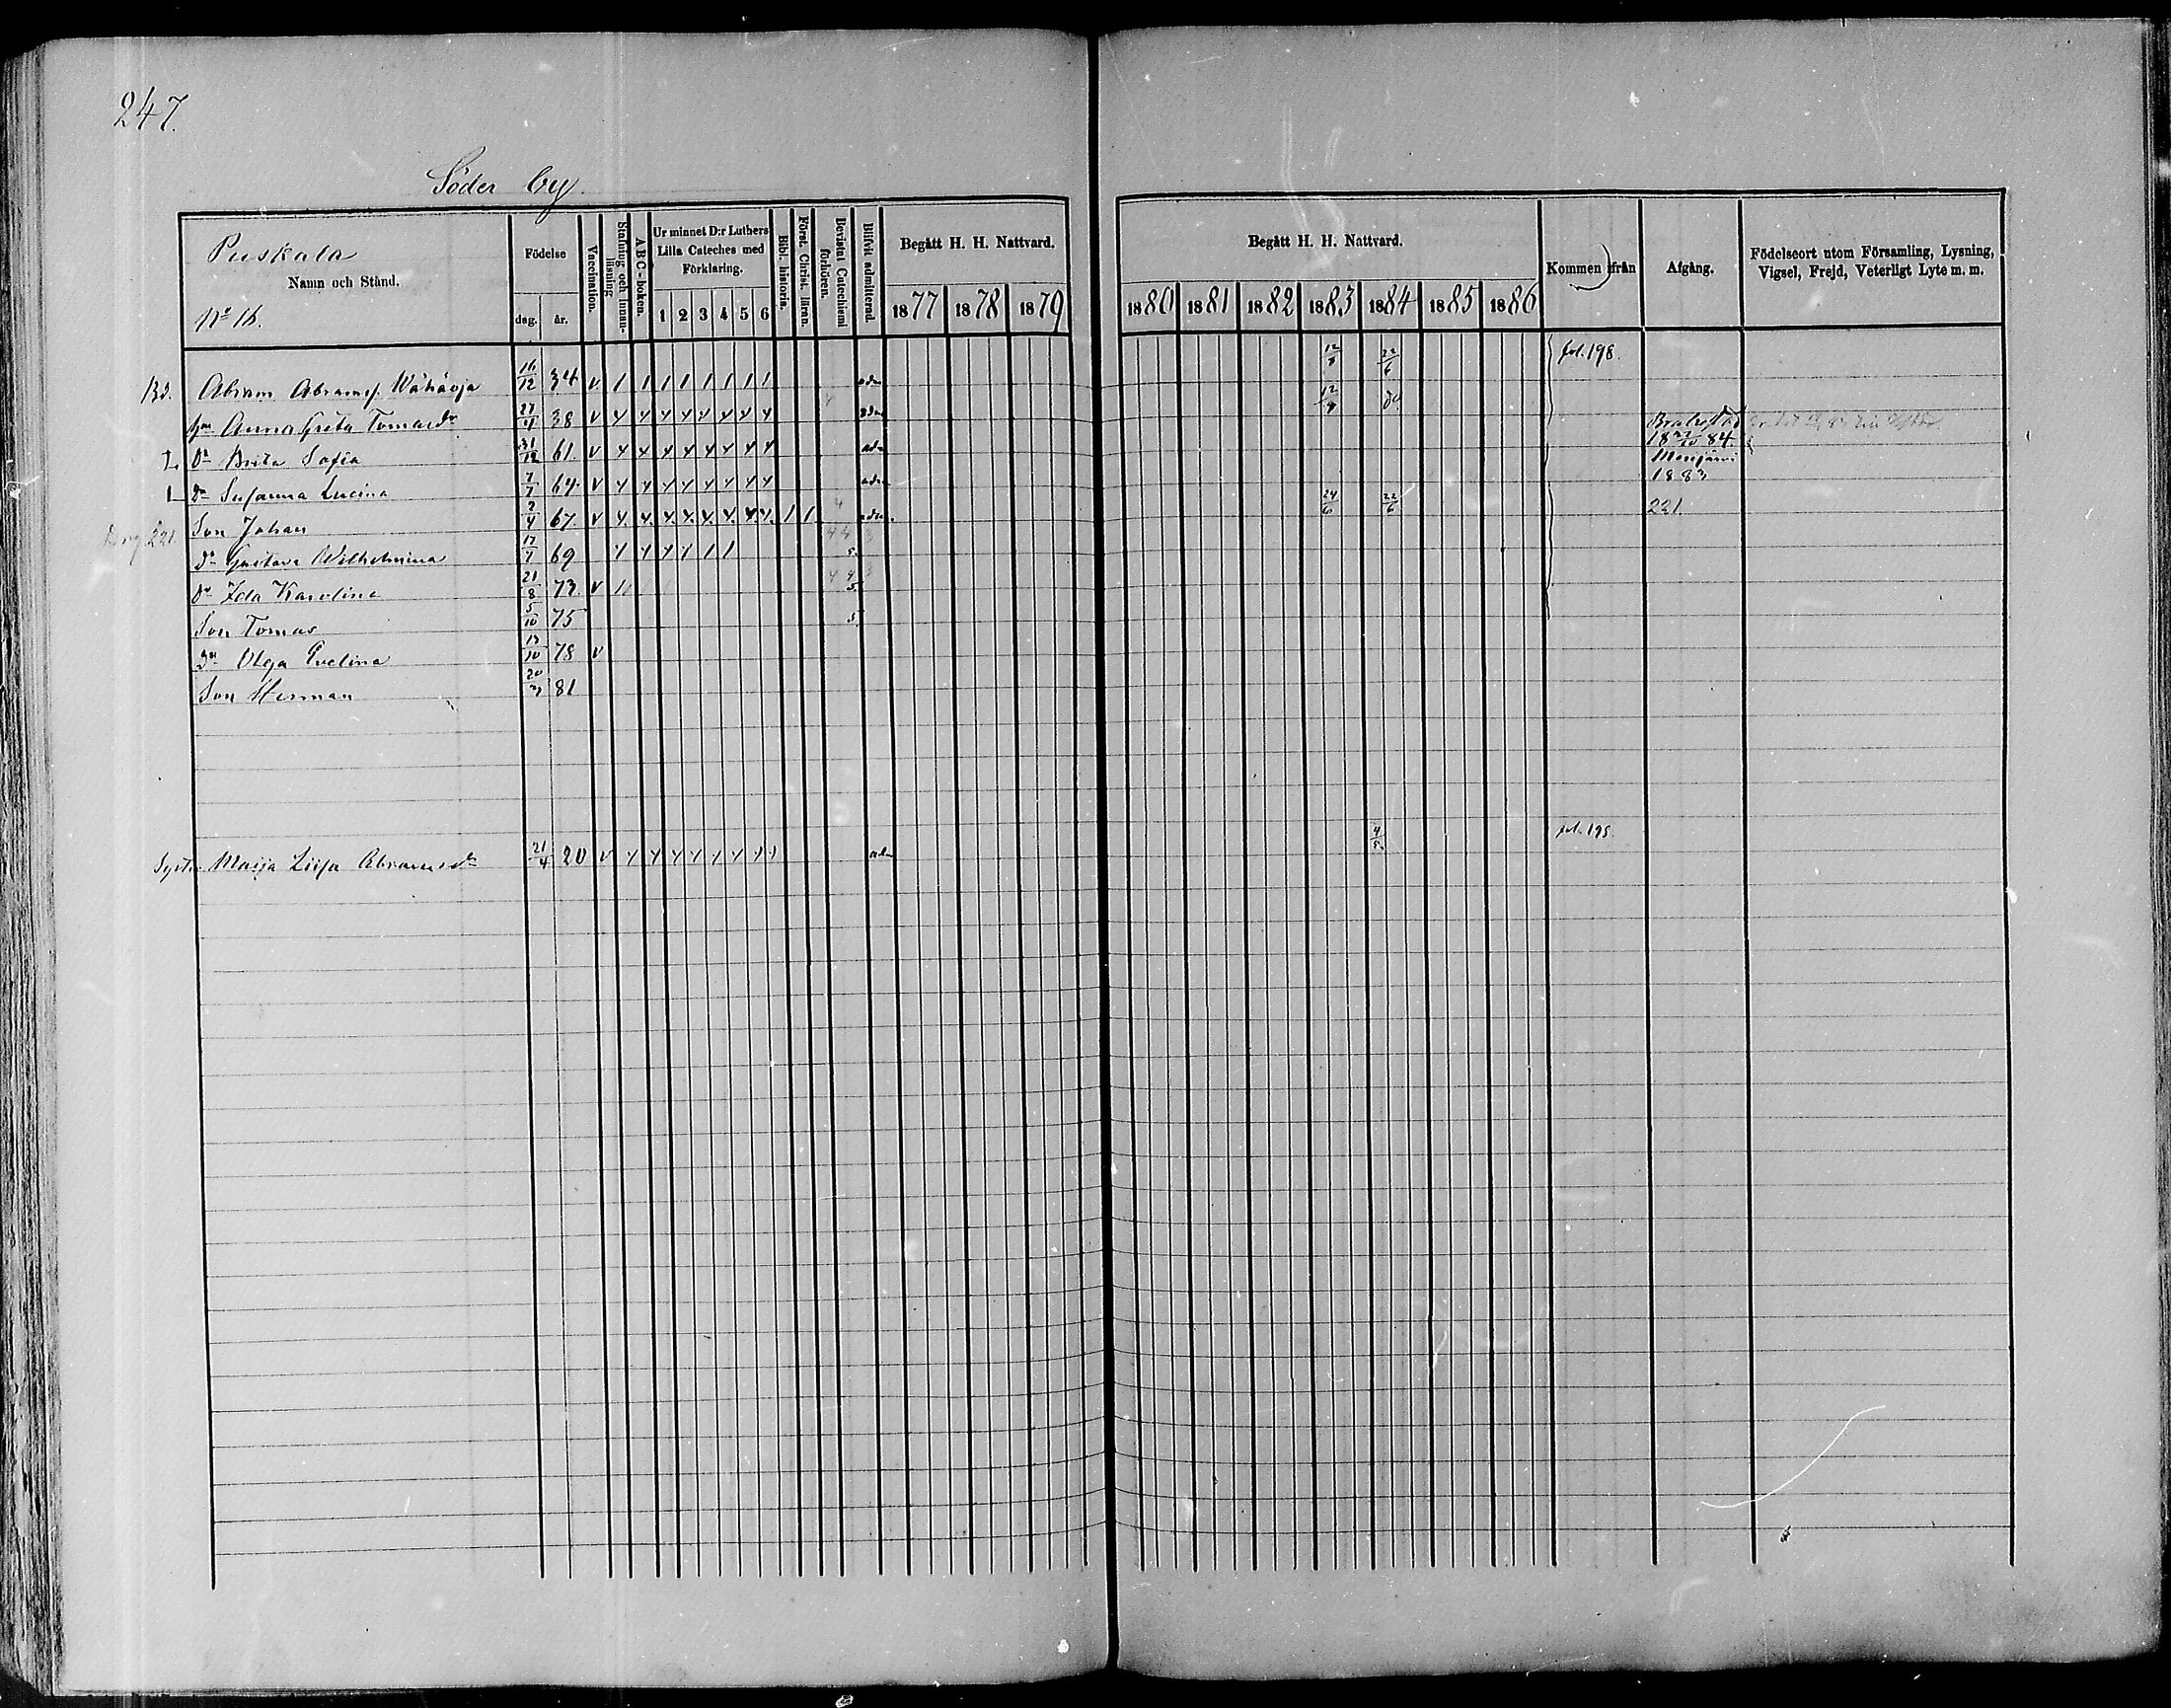 247.
Söder by.
Puskala
Namn och Stånd.
No 16.
Födelse
dag.
år.
Vaccination.
Stafning och innanläsning
ABC-boken.
Ur minnet D:r Luthers Lilla Cateches med Förklaring.
1 2 3 4 5 6
Bibl. historia.
Först. Christ. läran.
Bevistat Catechismi förhören.
Blifvit admitterad.
Begått H. H. Nattvard.
1877 1878 1879
Begått H. H. Nattvard.
1880 1881 1882 1883 1884 1885 1886
Kommen ifrån
Afgång.
Födelseort utom Församling, Lysning, Vigsel, Frejd, Veterligt Lyte m. m.
Bd. Abram Abramss. Wähäoja 16/12 34 v 1 1 1 1 1 1 1 1 adm 22/6 fol. 198.
Anna Greta Tomasdr 27/4 38 v adm
Brahestad
Dr Brita Sofia 31/12 61. v adm 84.
Dr Susanna Lucina 7/7 64 v adm Merijärvi 1883
Son Johan 2/4 67. v 1 1 adm. 24/6 22/6 221
Dr Gustava Wilhelmina 17/7 69 5.
Dr Ida Karolina 21/8 73 v 1 5.
Son Tomas 5/10 75 5.
Dr Olga Evelina 13/10 78 v
Son Herman 20/3 81
Syster Maija Liisa Abramsdr 21/4 20 v adm 4/5 fol. 198.